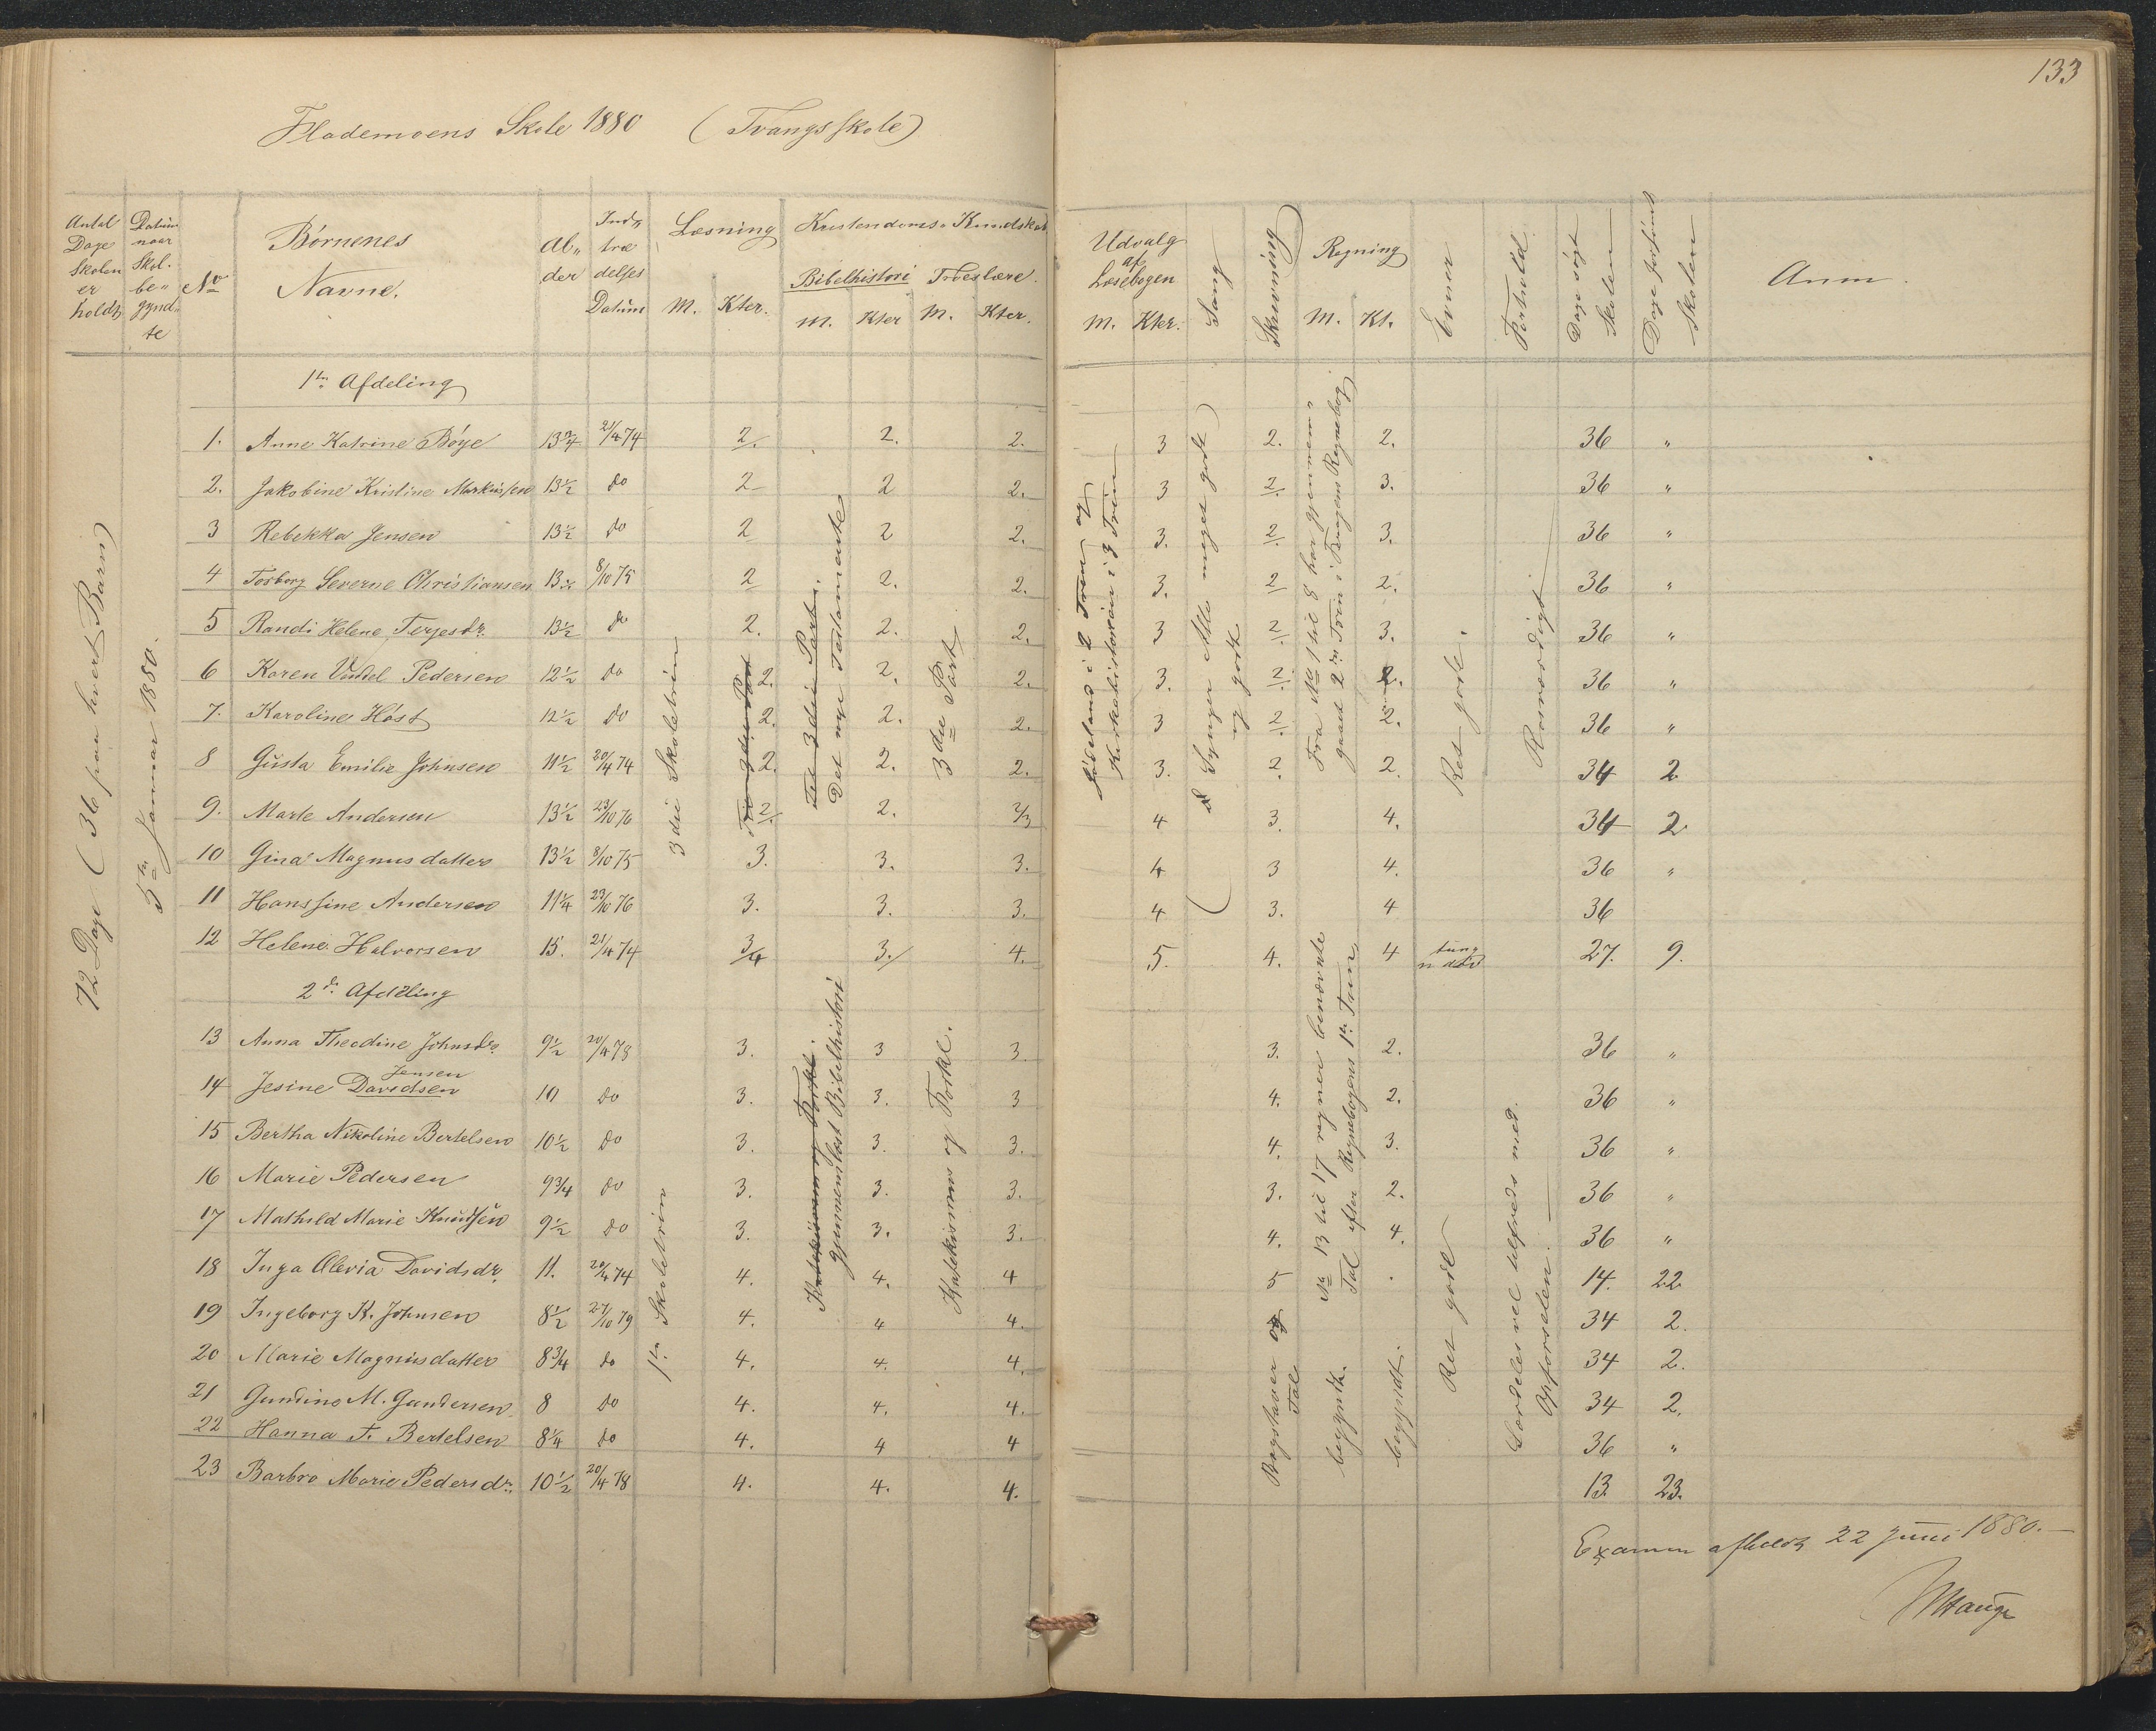 133
Flademoens Skole 1880 (Tvangsskole)
Antal Dage Skolen er holdt
Datum naar Skol. be„ gynd„ te
No
Børnenes Navne.
Al„ der
Ind„ træ delses Datum
Læsning M. Kter.
Kristendoms„ Kundskab
Bibelhistori M. Kter
Troeslære. M. Kter.
Udvalg af Læsebogen M. Kter.
Sang
Skrevning
Regning M. Kt.
Evner
Forhold
Dage søgt Skolen
Dage forsømt Skolen
Anm.
72 Dage (36 paa hvert Barn)
5te Januar 1880.
1ste Afdeling
1. Anne Katrine Bøye 13 3/4 21/4 74 2. 2. 2. 3 2. 2. 36 „
2. Jakobine Kristine Markussen 13 1/2 do 2 2 2. 3 2. 3. 36 „
3 Rebekka Jensen 13 1/2 do 2 2 2. 3. 2. 3. 36 „
4 Torborg Severne Christiansen 13 8/10 75 2 2. 2. 3. 2 2. 36 „
5 Randi Helene Terjesdr. 13 1/2 do 2. 2. 2. 3 2 3. 36 „
6 Karen Pedersen 12 1/2 do 2. 2. 2. 3. 2. 2. 36 „
7. Karoline Høst 12 1/2 do 2. 2. 2. 3 2. 2. 36 „
8 Gusta Emilie Johnsen 11 1/2 20/4 74 2. 2. 2. 3. 2. 2. 34 2
9. Marte Andersen 13 1/2 23/10 76 2. 2. 2/3 4 3. 4. 34 2
10 Gina Magnusdatter 13 1/2 8/10 75 3. 3. 3. 4 3 4. 36 „
11 Hanssine Andersen 11 1/4 23/10 76 3. 3. 3. 4 3. 4 36
12 Helene Halvorsen 15. 21/4 74 3/4 3. 4. 5. 4. 4 tung 27. 9.
3die Skoletrin
Til 3die Part.
Det nye Testamente
3die Part
Jødeland i 2 Trin og
Kirkehistorien i 3 Trin
Synger Alle meget godt
og godt
Fra No 1 til 8 har gjennem„
gaaet 2det Trin i Regnebog
Ret gode.
Rosværdigt
2den Afdeling
13 Anna Theodine Johnsdr. 9 1/2 20/4 78 3. 3 3. 3. 2. 36 „
Jensen
14 Jesine Davidsen 10 do 3. 3. 3 4. 2. 36 „
15 Bertha Nikoline Bertelsen 10 1/2 do 3. 3. 3. 4. 3. 36 „
16 Marie Pedersen 9 3/4 do 3. 3. 3. 3. 2. 36 „
17 Mathild Marie Knudsen 9 1/2 do 3. 3. 3. 4. 4. 36 „
18 Inga Olevia Davidsdr. 11. 20/4 74 4. 4. 4 5 . 14. 22
19 Ingeborg K. Johnsen 8 1/2 27/10 79 4. 4 4. 34 2.
20 Marie Magnusdatter 8 3/4 do 4. 4. 4. 34 2.
21 Gundine M. Gundersen 8 do 4. 4. 4. 34 2.
22 Hanna F. Bertelsen 8 1/4 do 4. 4 4 36 „
23 Barbro Marie Pedersdr. 10 1/2 20/4 78 4. 4. 4. 13. 23.
1ste Skoletrin
Katekismus og Forkl.
gjennemlæst Bibelhistori
Katekismus og Forkl.
No 13 til 17 regner benævnte
Tal efter Regnebogens 1ste Trin
Bogstaver og
Tal
begyndt.
begyndt.
Ret gode
Særdeles vel tilfreds med
Opførselen.
Examen afholdt 22 Juni 1880.
Hauge